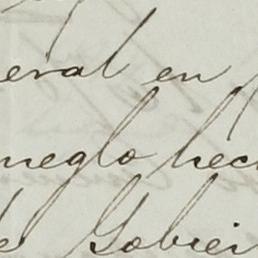 eral en
neglo hec
de Gobier